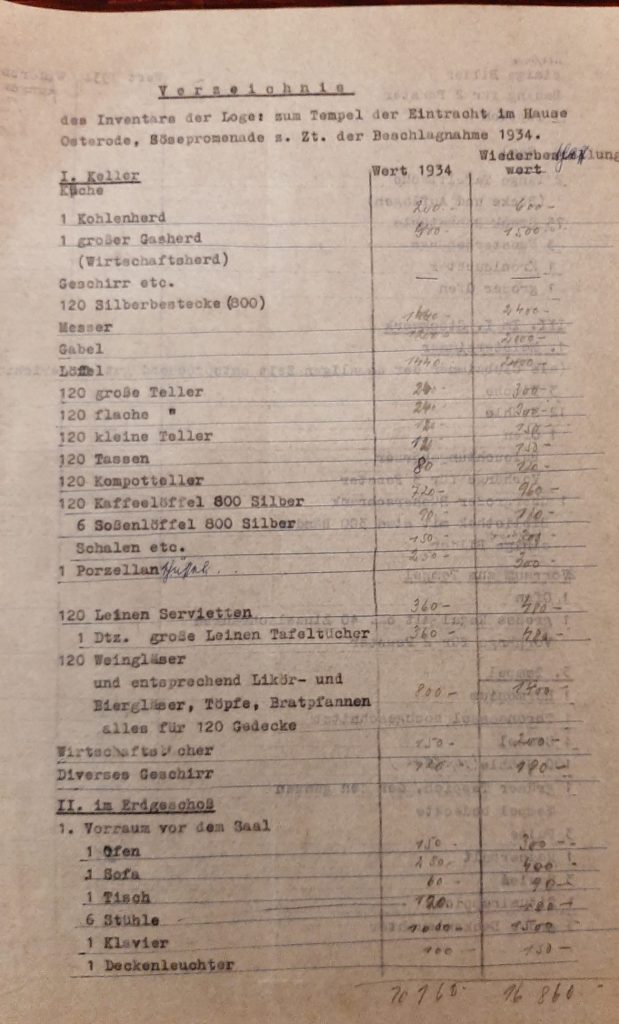 Verzeichnis
des Inventars der Loge: zum Tempel der Eintracht im Hause
Osterode, Sösepromenade z. Zt. der Beschlagnahme 1934.
Wert 1934 Wiederbeschaffungswert
I. Keller
Küche
1 Kohlenherd 200.- 600.-
1 großer Gasherd 1500.-
(Wirtschaftsherd)
Geschirr etc. —
120 Silberbestecke (800)
Messer 2400.-
Gabel 2000.-
Löffel 1440.- 2400.-
120 große Teller 300.-
120 flache "
120 kleine Teller 150.-
120 Tassen 150.-
120 Kompotteller 80
120 Kaffeelöffel 800 Silber 720.- 960.-
6 Soßenlöffel 800 Silber
Schalen etc. 150.-
1 Porzellan 300.-
120 Leinen Servietten 360.- 780.-
1 Dtz. große Leinen Tafeltücher 360.- 780.-
120 Weingläser
und entsprechend Likör- und
Biergläser, Töpfe, Bratpfannen 800.-
alles für 120 Gedecke
Wirtschaftsbücher 150.- 200.-
Diverses Geschirr
II. im Erdgeschoß
1. Vorraum vor dem Saal
1 Ofen 150.- 300.-
1 Sofa 400.-
1 Tisch 60.- 90.-
6 Stühle
1 Klavier 1000.- 1500.-
1 Deckenleuchter 100.- 150.-
16 860.-